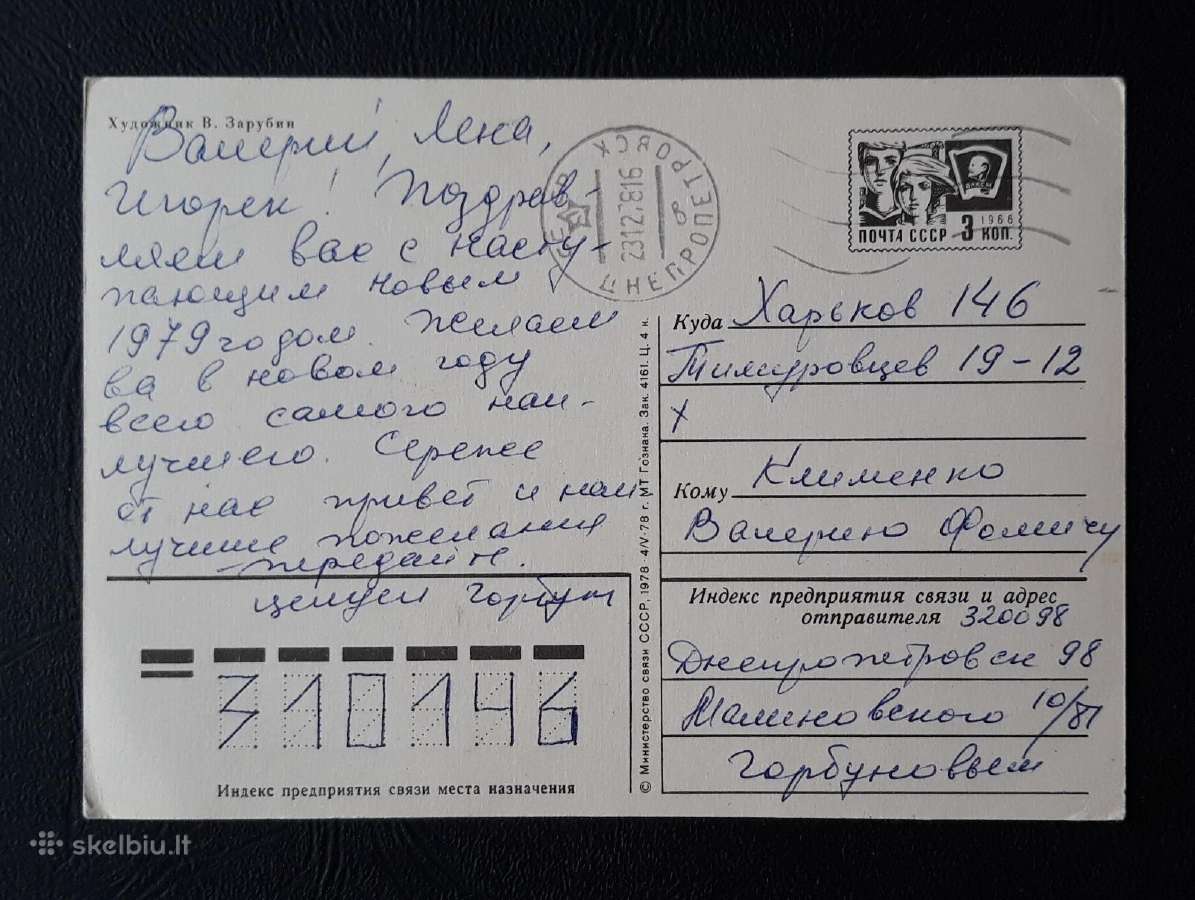 Художник В. Зарубин
Валерий, Лена,
Игорек! Поздрав-
ляем вас с насту-
пающим новым
1979 годом. Желаем
ва в новом году
всего самого наи-
лучшего. Сереже
от нас привет и наи
лучшие пожелания
передайте.
целуем Горбун
Индекс предприятия связи места назначения
310146
ДНЕПРОПЕТРОВСК
23127816
8
ПОЧТА СССР 3 КОП.
1966
ВЛКСМ
© Министерство связи СССР, 1978 - 4/V-78 г. МТ Гознака. Зак. 4161. Ц. 4 к.
Куда Харьков 146
Тимуровцев 19-12
х
Кому Клименко
Валерию Фомичу
Индекс предприятия связи и адрес
отправителя 320098
Днепропетровск 98
Малиновского 10/81
Горбуновым
skelbiu.lt